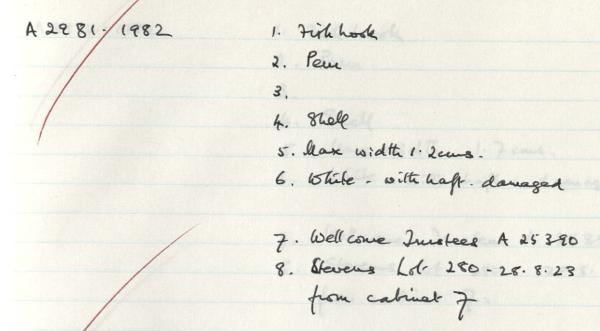 A 2981. 1982
1. Fish hook
2. Peru
3.
4. Shell
5. Max width 1.2cms.
6. White - with haft. damaged
7. Wellcome Trustees A 25390
8. Stevens Lot 280 - 28.8.23
from cabinet 7